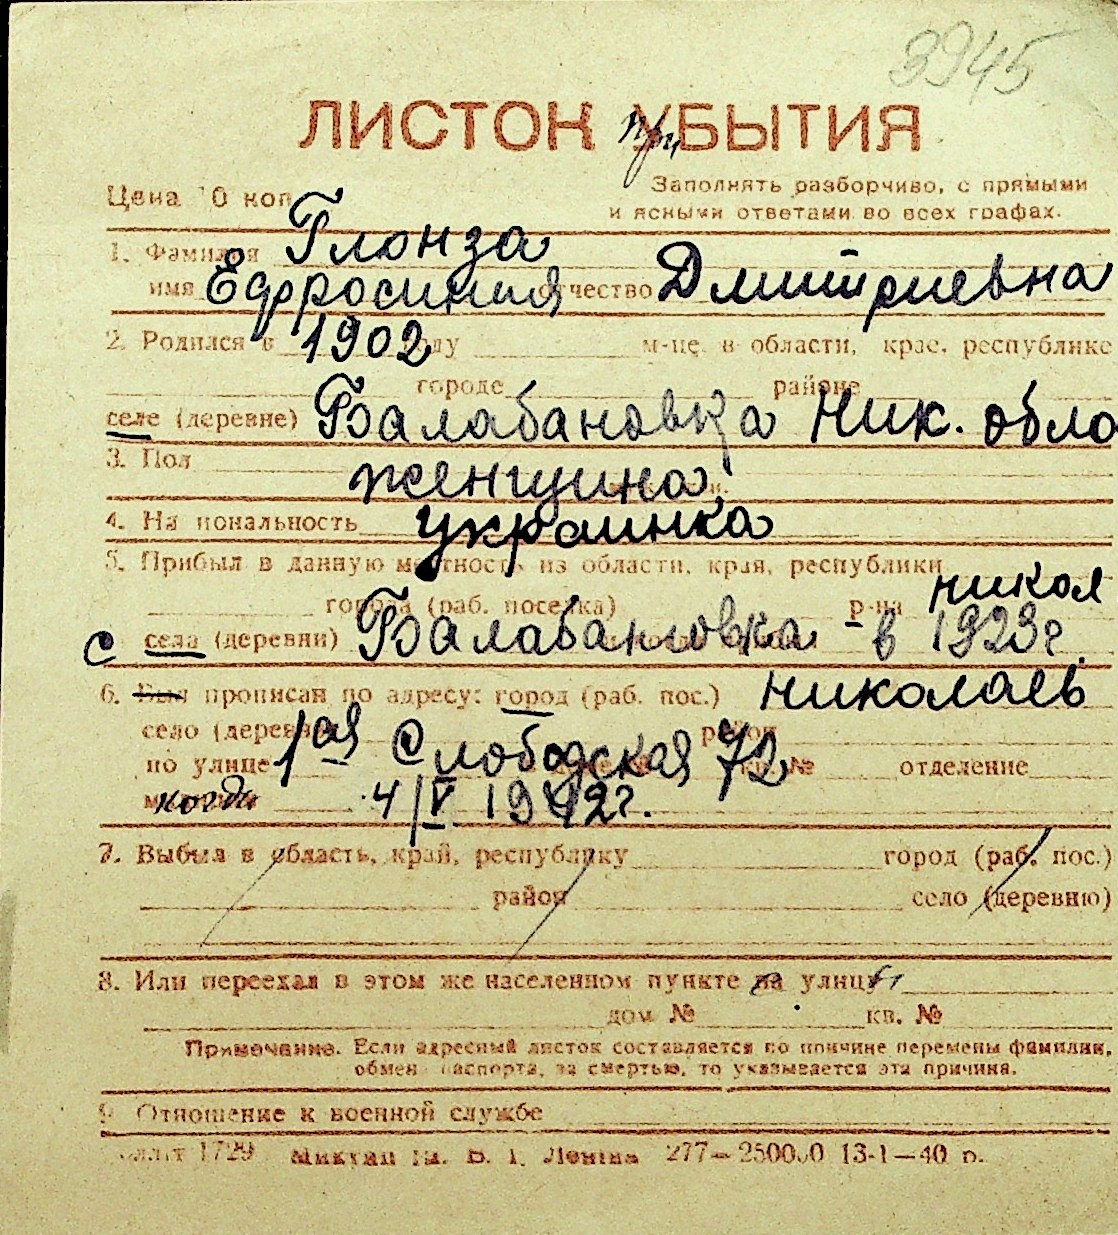 3945
ЛИСТОК при УБЫТИЯ
Цена 10 коп
Заполнять разборчиво, с прямыми
и ясными ответами во всех графах.
1. Фамилия Глонза
имя Ефросиния отчество Дмитриевна
2. Родился в 1902 году м-це в области, крае, республике
городе районе
селе (деревне) Балабановка Ник. обла
3. Пол женщина
4. Национальность украинка
5. Прибыл в данную местность из области, края, республики
города (раб. поселка) р-на Никол
с села (деревни) Балабановка - в 1923г.
6. Был прописан по адресу: город (раб. пос.) Николаев
село (деревня) район
по улице 1ая Слободская 72 № отделение
когда 4/V 1942г.
7. Выбыл в область, край, республику город (раб. пос.)
район село (деревню)
8. Или переехал в этом же населенном пункте на улицу
дом № кв. №
Примечание. Если адресный листок составляется по причине перемены фамилии,
обмен паспорта, за смертью, то указывается эта причина.
9. Отношение к военной службе
1729 Ленина 277—250000 13-1—40 р.